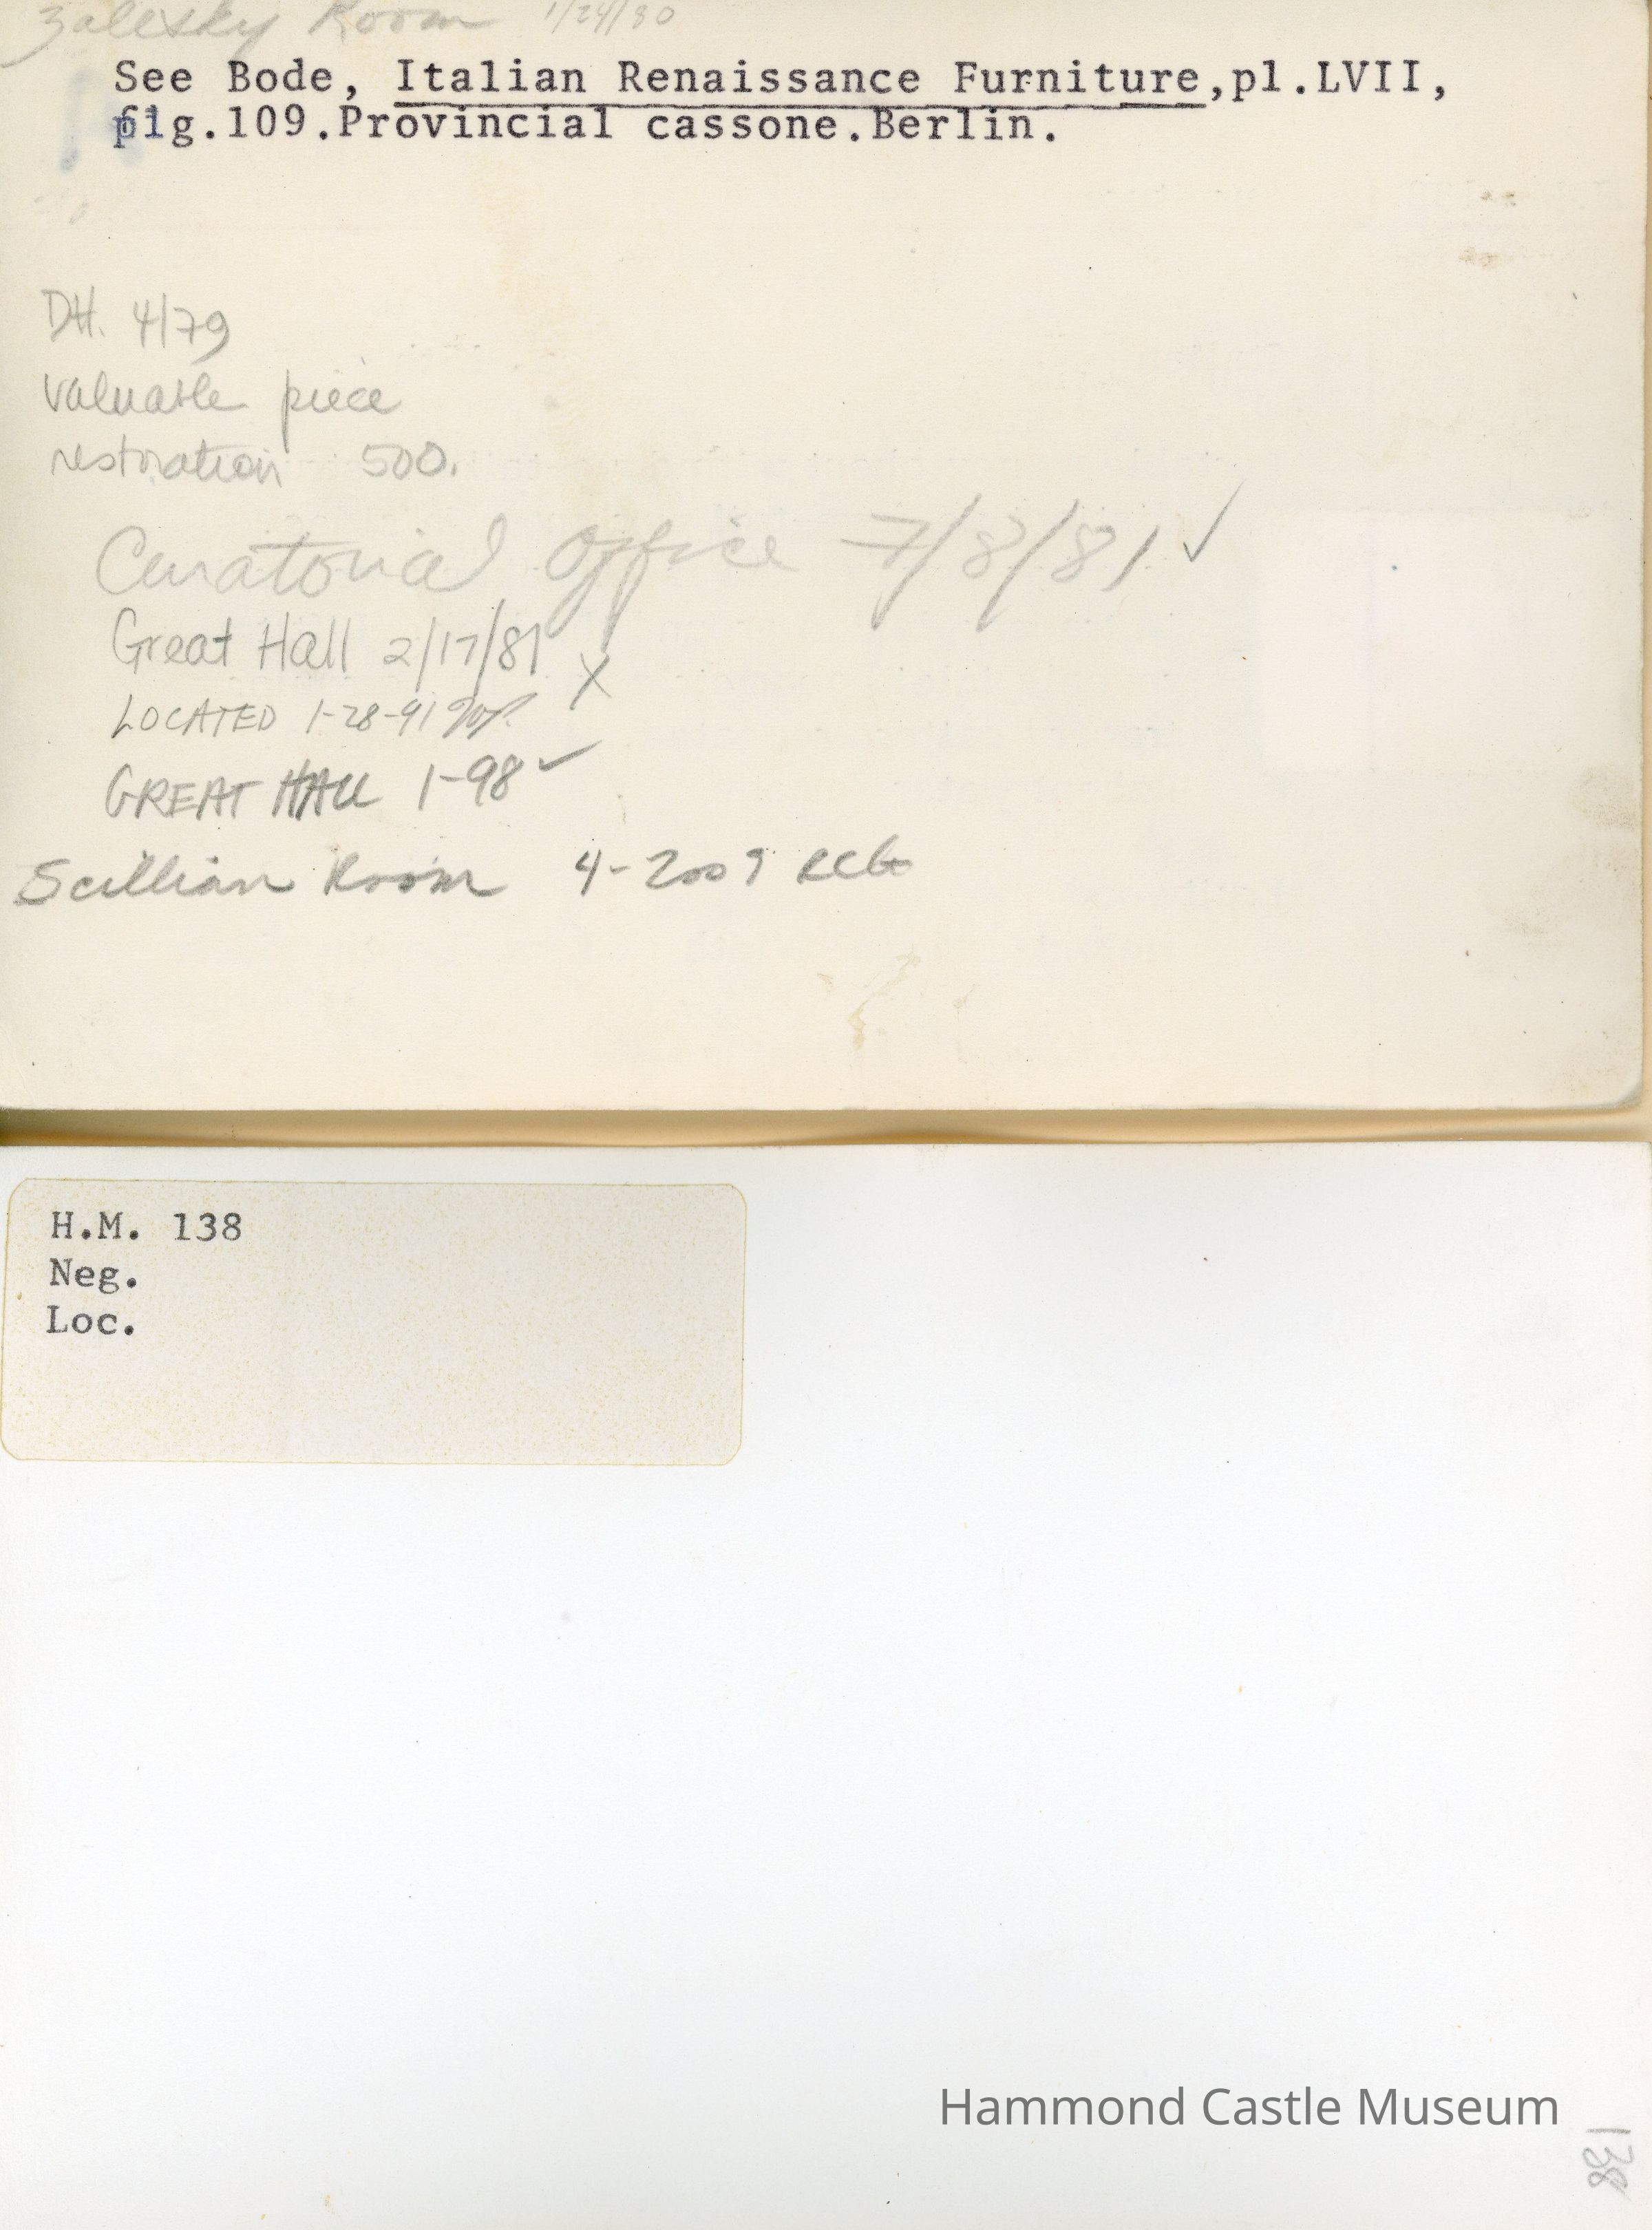 Zalesky Room 1/24/80
See Bode, Italian Renaissance Furniture,pl.LVII,
fig.109.Provincial cassone.Berlin.
DH. 4/79
valuable piece
restoration 500.
Curatorial Office 7/8/81 ✓
Great Hall 2/17/81 X
LOCATED 1-28-91
GREAT HALL 1-98 ✓
Scillian Room 4-2009
H.M. 138
Neg.
Loc.
Hammond Castle Museum
138